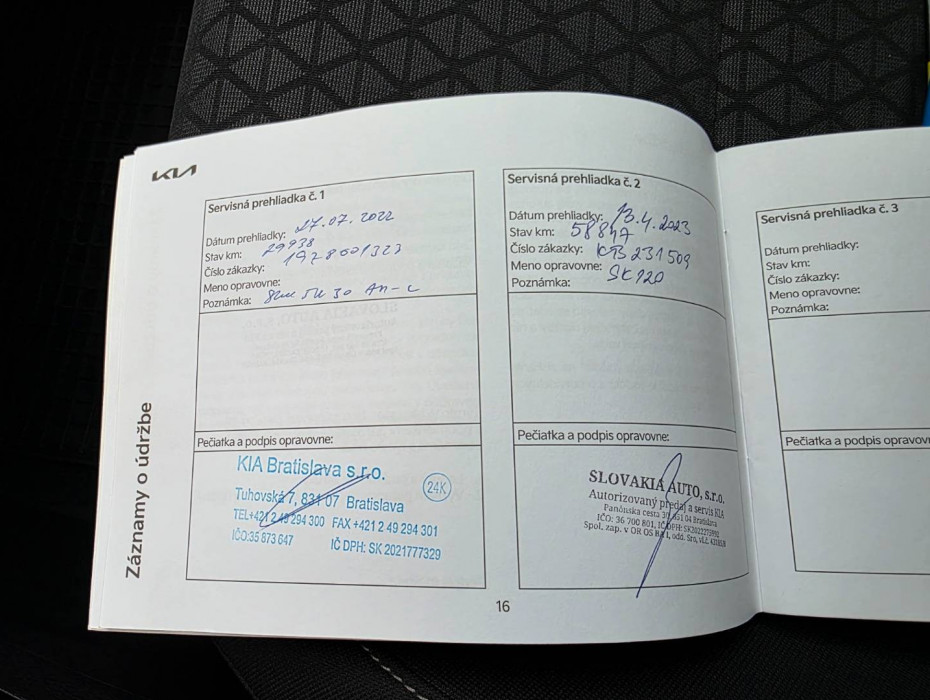 KIA
Servisná prehliadka č. 1
Dátum prehliadky: 27.07.2022
Stav km: 29938
Číslo zákazky: 1928601323
Meno opravovne:
Poznámka: 30
Pečiatka a podpis opravovne:
KIA Bratislava s.r.o.
Tuhovská 7, 831 07 Bratislava
24K
TEL+421 2 49 294 300 FAX +421 2 49 294 301
IČO:35 873 647 IČ DPH: SK 2021777329
Servisná prehliadka č. 2
Dátum prehliadky: 13.4.2023
Stav km: 58847
Číslo zákazky: KB231509
Meno opravovne: SK120
Poznámka:
Pečiatka a podpis opravovne:
SLOVAKIA AUTO, s.r.o.
Autorizovaný predaj a servis KIA
Panónska cesta 30, 851 04 Bratislava
IČO: 36 700 801, IČ DPH:
Spol. zap. v OR OS BA I, odd. Sro,
Servisná prehliadka č. 3
Dátum prehliadky:
Stav km:
Číslo zákazky:
Meno opravovne:
Poznámka:
Pečiatka a podpis opravovn
Záznamy o údržbe
16